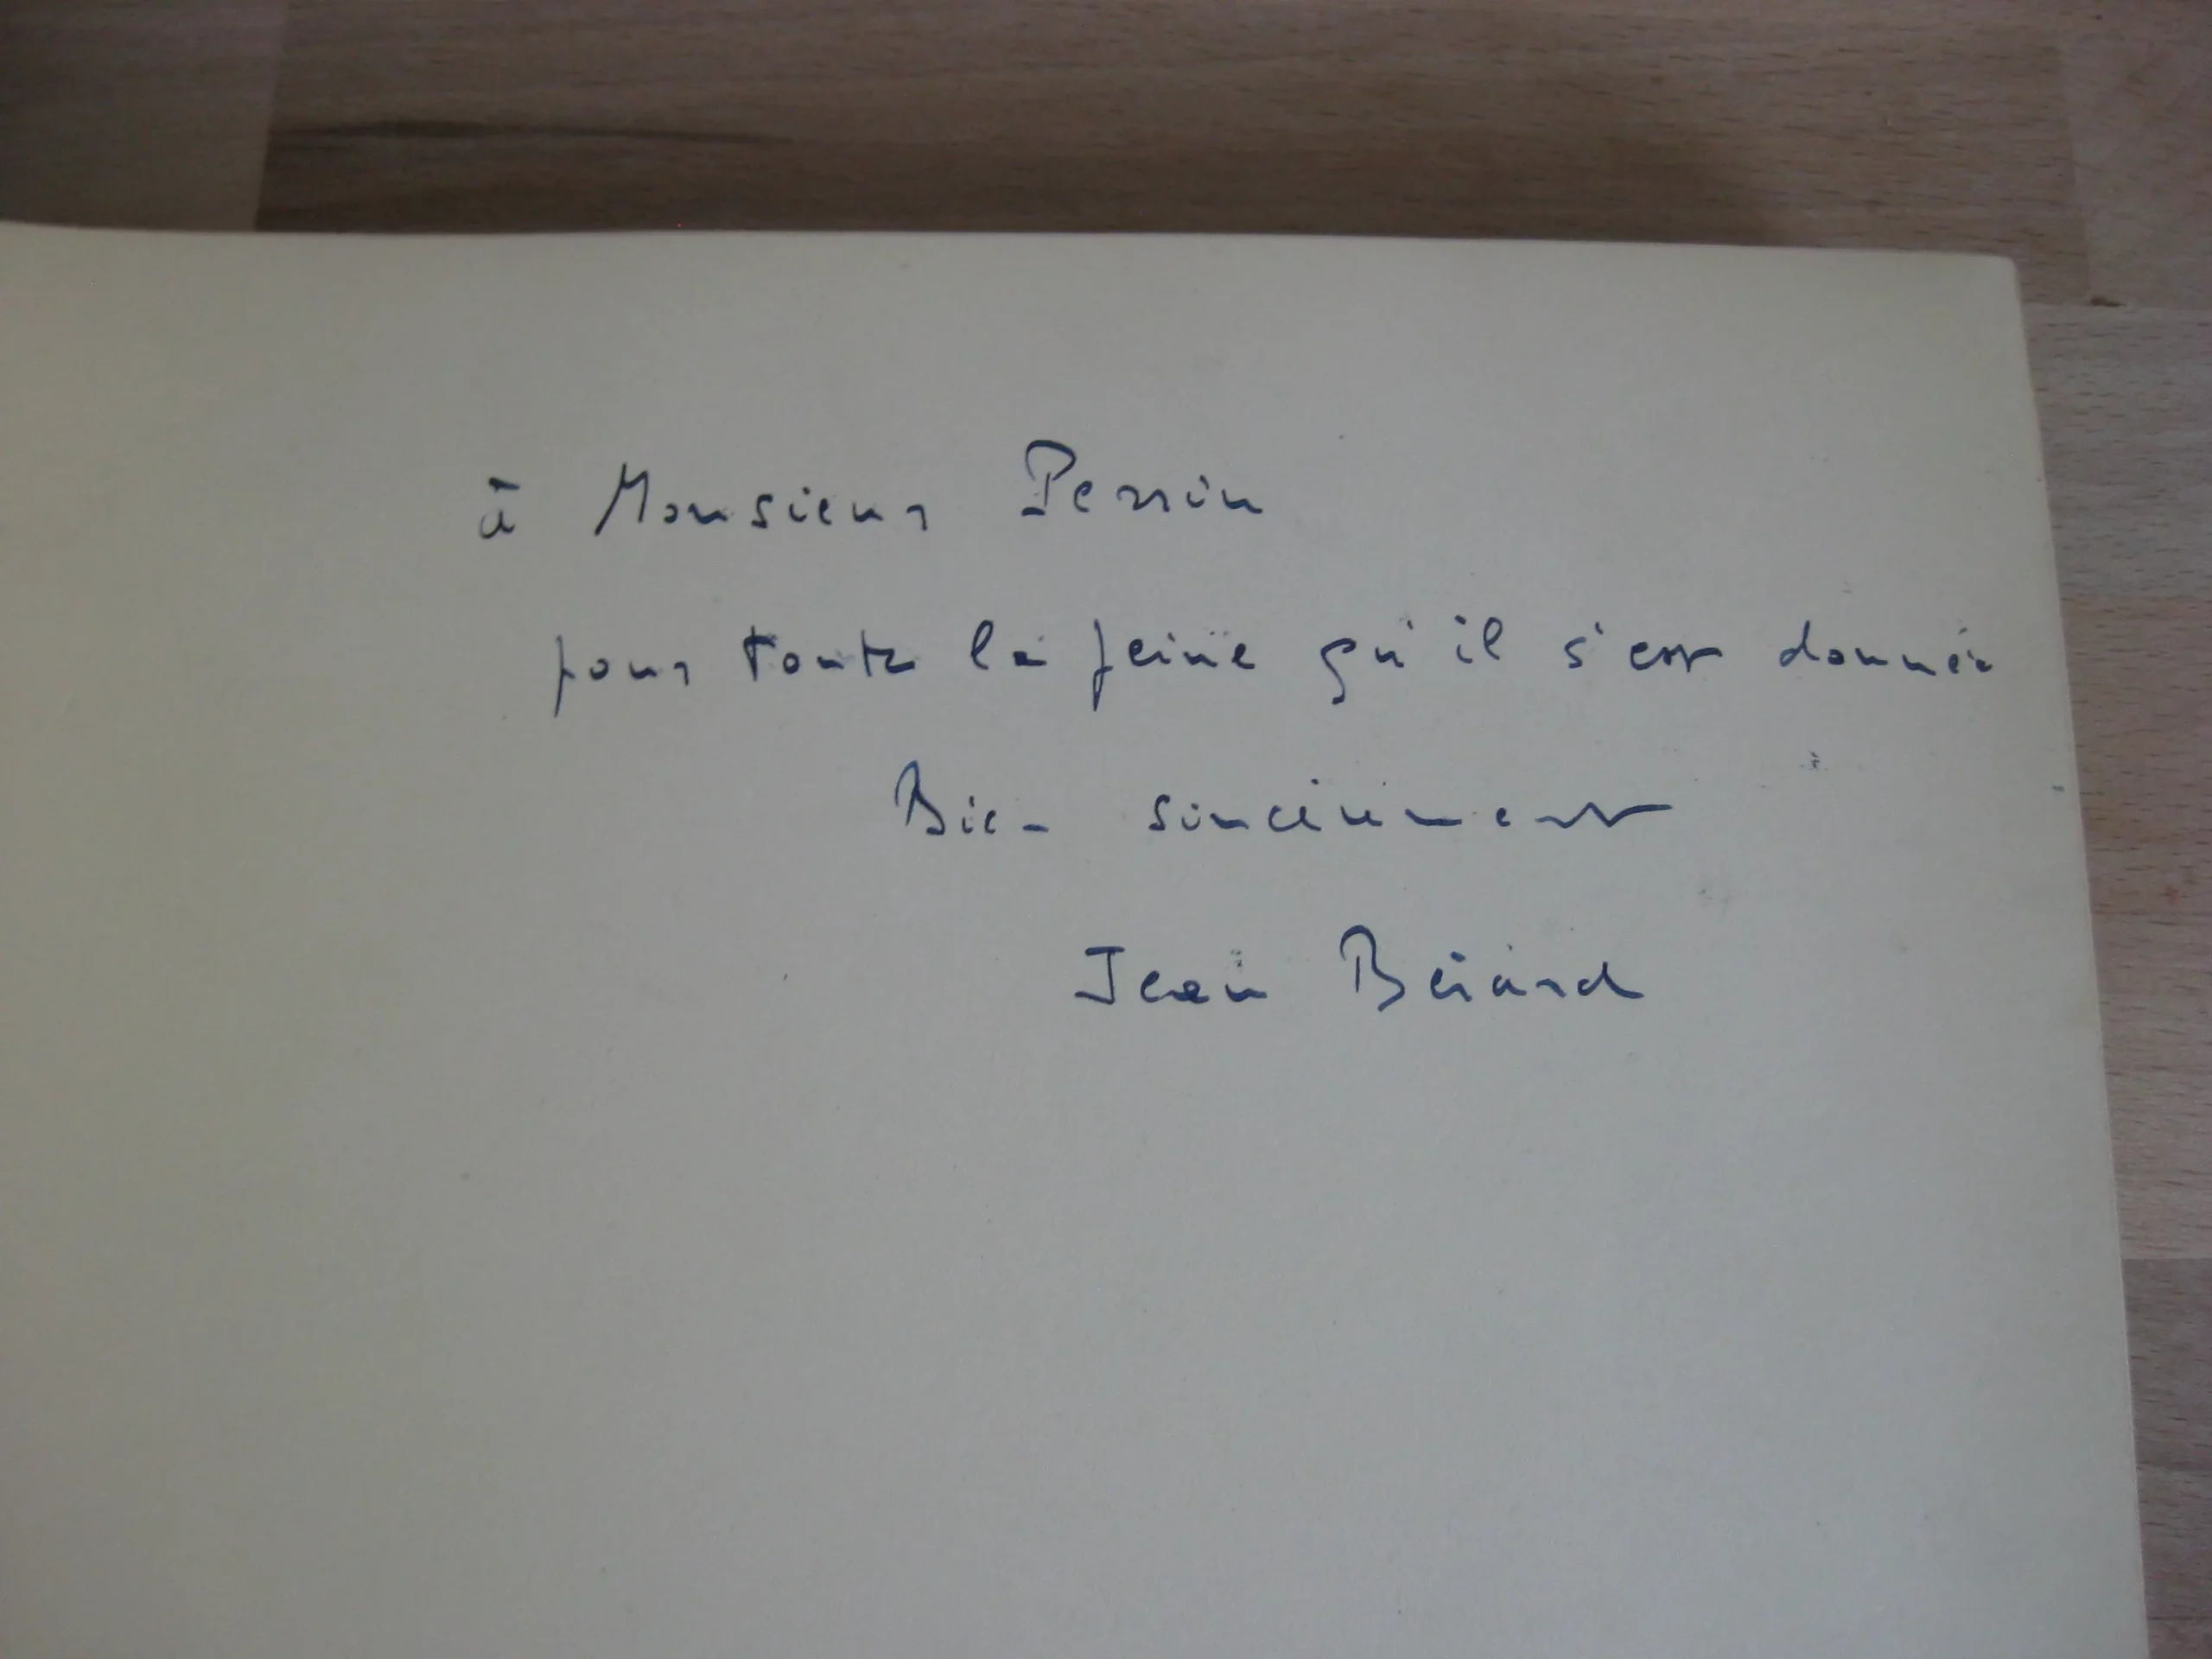 à Monsieur Perrin
pour toute la peine qu'il s'est donnée
Bien sincèrement
Jean Bérard